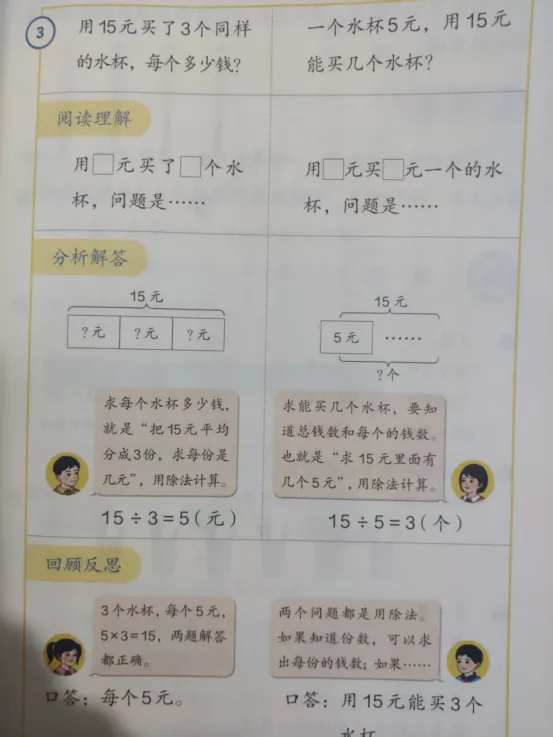 3
用15元买了3个同样
的水杯，每个多少钱？
一个水杯5元，用15元
能买几个水杯？
阅读理解
用□元买了□个水
杯，问题是……
用□元买□元一个的水
杯，问题是……
分析解答
15元
?元 ?元 ?元
15元
5元 ……
?个
求每个水杯多少钱，
就是“把15元平均
分成3份，求每份是
几元”，用除法计算。
求能买几个水杯，要知
道总钱数和每个的钱数。
也就是“求15元里面有
几个5元”，用除法计算。
15÷3=5（元）
15÷5=3（个）
回顾反思
3个水杯，每个5元，
5×3=15，两题解答
都正确。
两个问题都是用除法。
如果知道份数，可以求
出每份的钱数；如果……
口答：每个5元。
口答：用15元能买3个
水杯